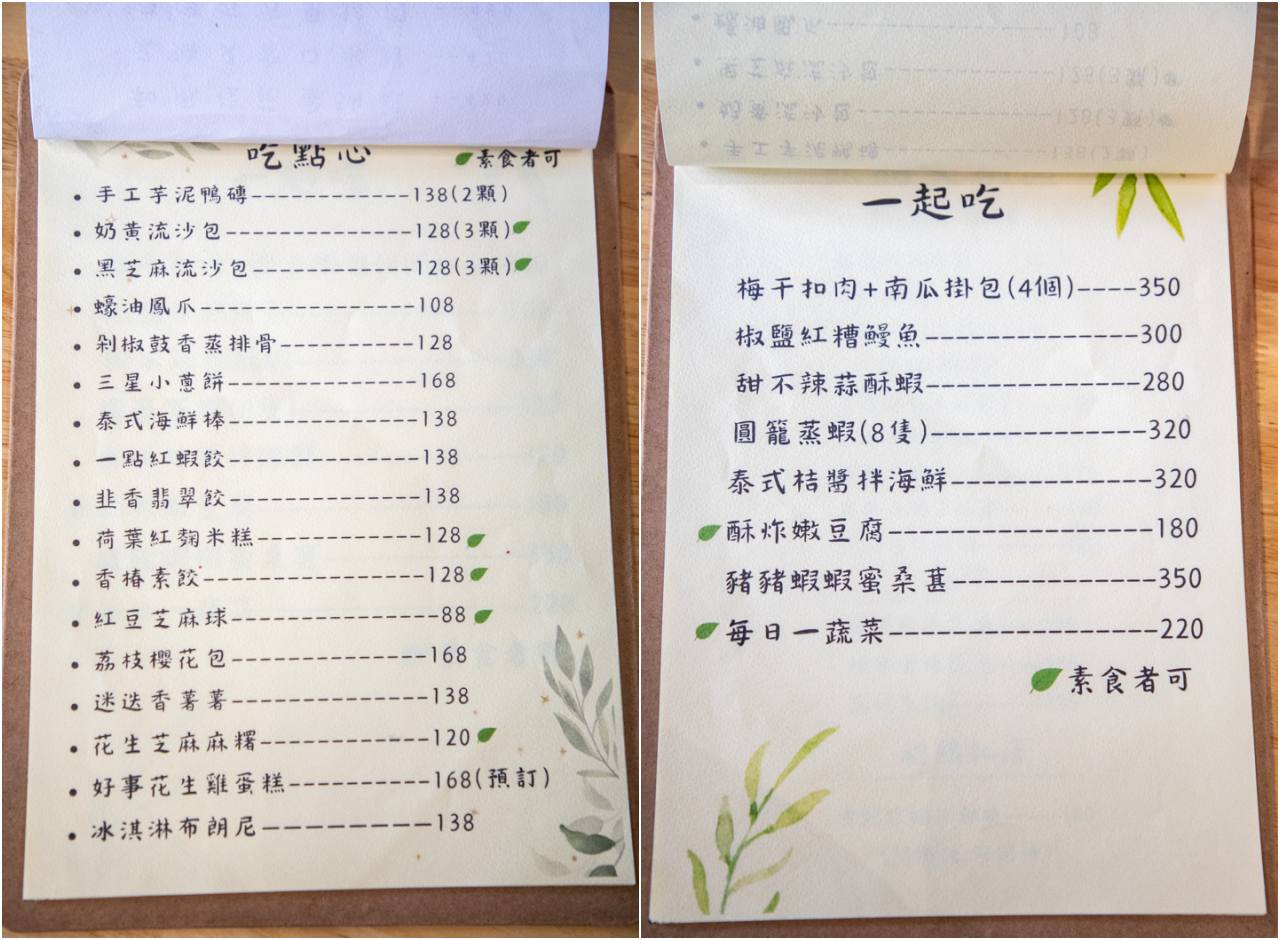 吃點心
素食者可
• 手工芋泥鴨磚------------138(2顆)
• 奶黃流沙包--------------128(3顆)
• 黑芝麻流沙包------------128(3顆)
• 蠔油鳳爪----------------108
• 剁椒鼓香蒸排骨----------128
• 三星小蔥餅--------------168
• 泰式海鮮棒--------------138
• 一點紅蝦餃--------------138
• 韭香翡翠餃--------------138
• 荷葉紅麴米糕------------128
• 香椿素餃----------------128
• 紅豆芝麻球---------------88
• 荔枝櫻花包--------------168
• 迷迭香薯薯--------------138
• 花生芝麻麻糬------------120
• 好事花生雞蛋糕----------168(預訂)
• 冰淇淋布朗尼----------138
一起吃
梅干扣肉+南瓜掛包(4個)----350
椒鹽紅糟鰻魚-------------300
甜不辣蒜酥蝦-------------280
圓籠蒸蝦(8隻)-------------320
泰式桔醬拌海鮮------------320
酥炸嫩豆腐----------------180
豬豬蝦蝦蜜桑葚------------350
每日一蔬菜----------------220
素食者可